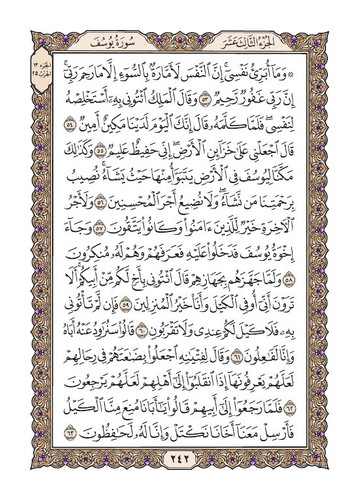 الجزء الثالث عشر
سورة يوسف
الجزء ١٣
الحزب ٢٥
۞ وَمَا أُبَرِّئُ نَفْسِي إِنَّ النَّفْسَ لَأَمَّارَةٌ بِالسُّوءِ إِلَّا مَا رَحِمَ رَبِّي
إِنَّ رَبِّي غَفُورٌ رَّحِيمٌ ٥٣ وَقَالَ الْمَلِكُ ائْتُونِي بِهِ أَسْتَخْلِصْهُ
لِنَفْسِي فَلَمَّا كَلَّمَهُ قَالَ إِنَّكَ الْيَوْمَ لَدَيْنَا مَكِينٌ أَمِينٌ ٥٤
قَالَ اجْعَلْنِي عَلَى خَزَائِنِ الْأَرْضِ إِنِّي حَفِيظٌ عَلِيمٌ ٥٥ وَكَذَلِكَ
مَكَّنَّا لِيُوسُفَ فِي الْأَرْضِ يَتَبَوَّأُ مِنْهَا حَيْثُ يَشَاءُ نُصِيبُ
بِرَحْمَتِنَا مَن نَّشَاءُ وَلَا نُضِيعُ أَجْرَ الْمُحْسِنِينَ ٥٦ وَلَأَجْرُ
الْآخِرَةِ خَيْرٌ لِّلَّذِينَ ءَامَنُوا وَكَانُوا يَتَّقُونَ ٥٧ وَجَاءَ
إِخْوَةُ يُوسُفَ فَدَخَلُوا عَلَيْهِ فَعَرَفَهُمْ وَهُمْ لَهُ مُنكِرُونَ
٥٨ وَلَمَّا جَهَّزَهُم بِجَهَازِهِمْ قَالَ ائْتُونِي بِأَخٍ لَّكُم مِّنْ أَبِيكُمْ أَلَا
تَرَوْنَ أَنِّي أُوفِي الْكَيْلَ وَأَنَا خَيْرُ الْمُنزِلِينَ ٥٩ فَإِن لَّمْ تَأْتُونِي
بِهِ فَلَا كَيْلَ لَكُمْ عِندِي وَلَا تَقْرَبُونِ ٦٠ قَالُوا سَنُرَاوِدُ عَنْهُ أَبَاهُ
وَإِنَّا لَفَاعِلُونَ ٦١ وَقَالَ لِفِتْيَانِهِ اجْعَلُوا بِضَاعَتَهُمْ فِي رِحَالِهِمْ
لَعَلَّهُمْ يَعْرِفُونَهَا إِذَا انقَلَبُوا إِلَى أَهْلِهِمْ لَعَلَّهُمْ يَرْجِعُونَ
٦٢ فَلَمَّا رَجَعُوا إِلَى أَبِيهِمْ قَالُوا يَا أَبَانَا مُنِعَ مِنَّا الْكَيْلُ
فَأَرْسِلْ مَعَنَا أَخَانَا نَكْتَلْ وَإِنَّا لَهُ لَحَافِظُونَ ٦٣
٢٤٢